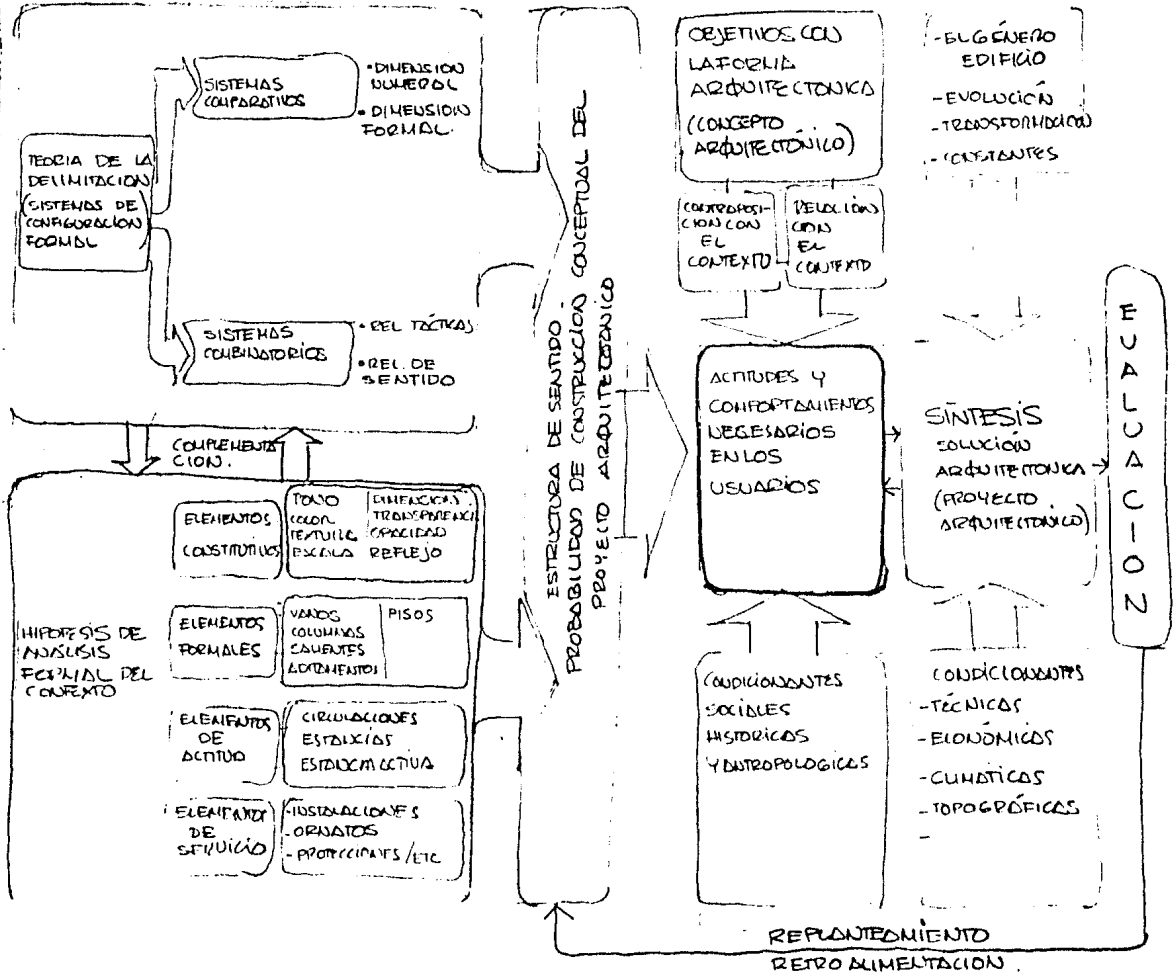 TEORIA DE LA
DELIMITACION
(SISTEMAS DE
CONFIGURACION
FORMAL)
SISTEMAS
COMPARATIVOS
• DIMENSION
NUMERAL
• DIMENSION
FORMAL.
SISTEMAS
COMBINATORIOS
• REL TÁCTICAS
• REL. DE
SENTIDO
COMPLEMENTA
CION.
HIPOTESIS DE
ANALISIS
FORMAL DEL
CONTEXTO
ELEMENTOS
CONSTITUTIVOS
TONO
COLOR
TEXTURA
ESCALA
DIMENCION
TRANSPARENCI
OPACIDAD
REFLEJO
ELEMENTOS
FORMALES
VANOS
COLUMNAS
SALIENTES
ADITAMENTOS
PISOS
ELEMENTOS
DE
ACTITUD
CIRCULACIONES
ESTANCIAS
ESTANCIA ACTIVA
ELEMENTOS
DE
SERVICIO
-INSTALACIONES
- ORNATOS
- PROTECCIONES/ETC
ESTRUCTURA DE SENTIDO-
PROBABILIDAD DE CONSTRUCCIÓN CONCEPTUAL DEL
PROYECTO ARQUITECTONICO
OBJETIVOS CON
LA FORMA
ARQUITECTONICA
(CONCEPTO
ARQUITECTÓNICO)
CONTRAPOSI-
CION CON
EL
CONTEXTO
RELACIÓN
CON
EL
CONTEXTO
-EL GÉNERO
EDIFICIO
-EVOLUCIÓN
-TRANSFORMACION
-CONSTANTES
ACTITUDES Y
COMPORTAMIENTOS
NECESARIOS
EN LOS
USUARIOS
SÍNTESIS
SOLUCIÓN
ARQUITECTONICA
(PROYECTO
ARQUITECTÓNICO)
EVALUACION
CONDICIONANTES
SOCIALES
HISTORICAS
Y ANTROPOLOGICAS
CONDICIONANTES
-TÉCNICAS
-ECONÓMICAS
-CLIMATICAS
-TOPOGRÁFICAS
-
REPLANTEAMIENTO
RETRO ALIMENTACION.